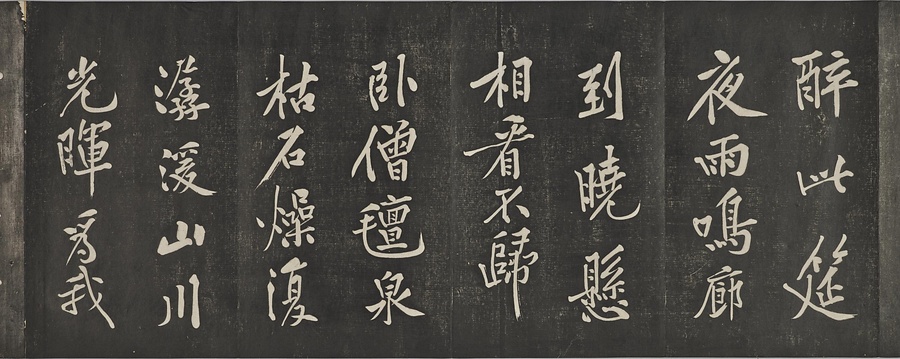 醉此筵
夜雨鳴廊
到曉懸
相看不歸
卧僧氊泉
枯石燥復
潺湲山川
光暉爲我